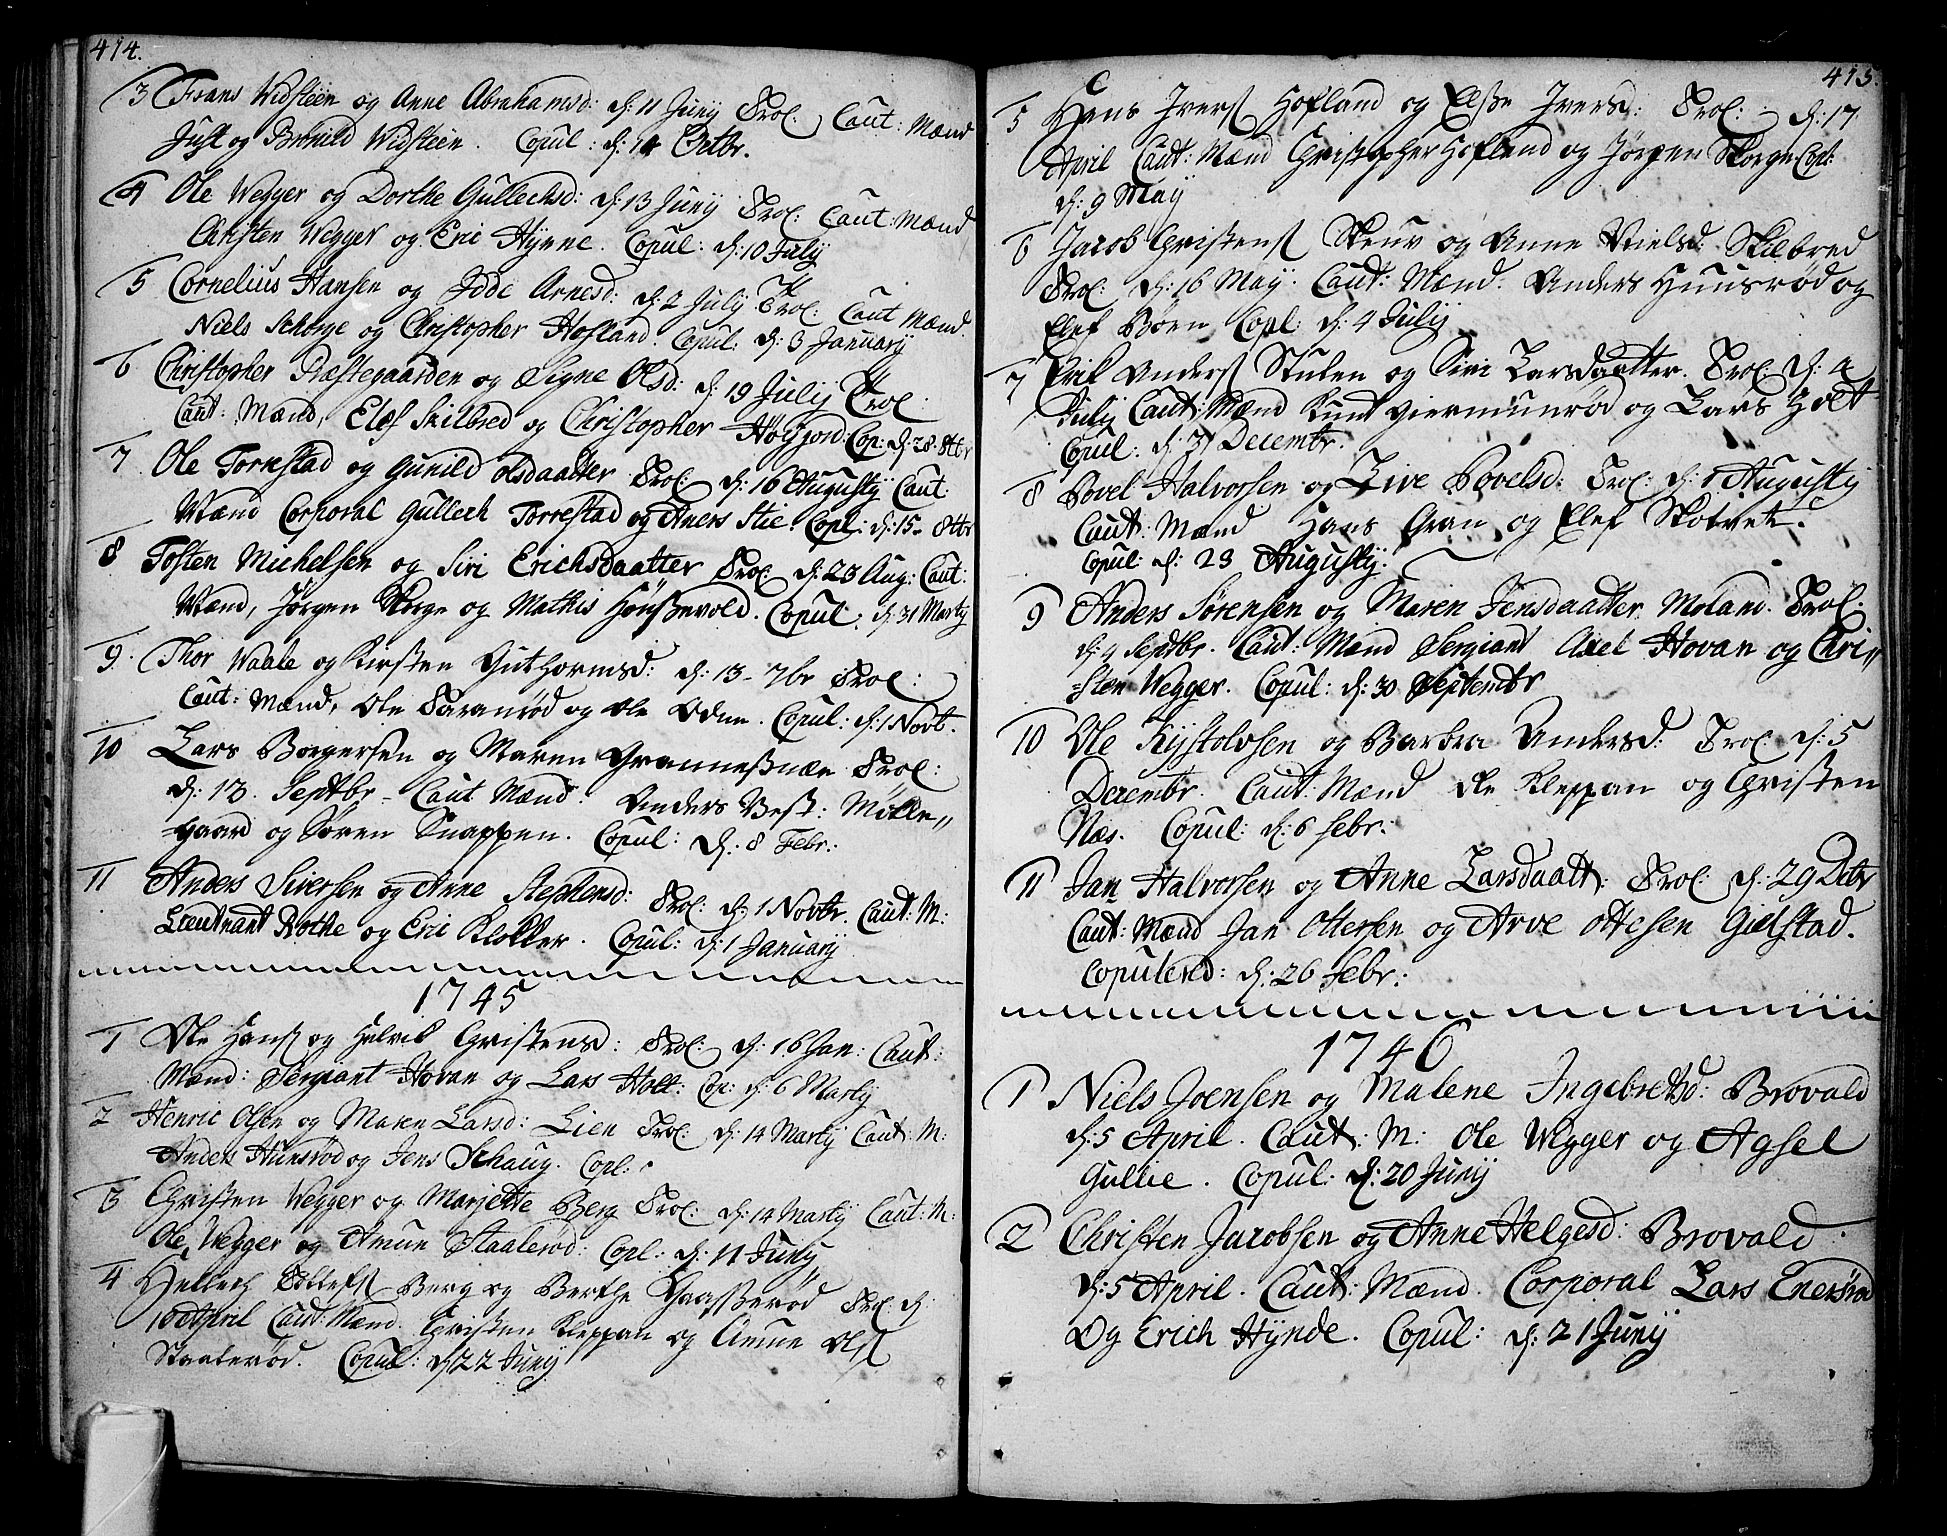 414.
3 Frans Widsteen og Anne Abrahamsd: d: 11 Junij Trol: Caut: Mænd
Just og Bronild Widsteen. Copul: d: 14 Octbr.
4 Ole Wegger og Dorthe Gullechsd: d: 13 Junij Trol: Caut: Mænd
Christen Wegger og Eric Hynne. Copul: d: 10 Julij
5 Cornelius Hansen og Idde Arnesd: d: 2 Julij Trol: Caut Mænd
Niels Schorge og Christopher Hofland. Copul: d: 3 Januarij
6 Christopher Præstegaarden og Signe Olsd: d: 19 Julij Trol:
Caut: Mænd, Elef Skilbred og Christopher Høisjord. Cop: d: 28. 8tbr
7 Ole Torrestad og Gunild Olsdaatter Trol: d: 16 Augustij Caut:
Mænd Corporal Gullech Torrestad og Aners Stie. Copl: d: 15. 8tbr
8 Tosten Michelsen og Siri Erichsdaatter Trol: d: 28 Aug: Caut:
Mænd, Jørgen Skorge og Mathis Hønsevold. Copul: d: 31 Martij
9. Thor Waale og Kirsten Guthormsd: d: 13 - 7br Trol:
Caut: Mænd, Ole Faranrød og Ole Odne. Copul: d: 1 Novt.
10 Lars Borgersen og Maren Grannesnæs Trol:
d: 13. Septbr - Caut Mænd: Anders Vest: Mølle„
=gaard og Søren Knappen. Copul: d: 8 Febr:
11 Anders Siversen og Anne Stephensd: Trol: d: 1 Novtr. Caut: M:
Lieutnant Rothe og Eric Klokker. Copul: d: 1 Januarij
1745
1 Ole Hans og Helvik Christensd: Trol: d: 16 Jan: Caut:
Mænd: Sergiant Hovan og Lars Holt: Cop: d: 6 Martij
2 Henric Olsen og Maren Larsd: Lien Trol: d: 14 Martij Caut: M:
Anders Hunsrød og Jens Schaug. Copl:
3 Christen Wegger og Marjedtte Berg Trol: d: 14 Martij Caut: M:
Ole Wegger og Amun Staalerød: Copl: d: 11 Junij
4 Hellech Berg og Berthe Gaasserød Trol: d:
10 April Caut: Mænd. Christen Kleppan og Amun Ols
Staalerød. Copul: d: 22 Junij
415.
5 Hans Ivers Hofland og Else Iversd: Trol: d: 17.
April Caut: Mænd Christopher Hofland og Jørgen Skorge Copl:
d: 9 Maij
6 Jacob Christens Skeuv og Anne Nielsd: Skilbred
Trol: d: 16 Maij. Caut: Mænd. Anders Huusrød og
Elef Børn Copl: d: 4 Julij
7 Erik Anders Stulen og Siri Larsdaatter. Trol: d: 4
Julij Caut: Mænd Knut Viermunrød og Lars Holt
Copul: d: 31 Decembr.
8 Povel Halvorsen og Live Povelsd: Trol: d: 1 Augustij
Caut: Mænd Hans Gran og Elef Skotvet.
Copul: d: 23 Augustij.
9 Anders Sørensen og Maren Jensdaatter Moland. Trol:
d: 4 Septbr. Caut: Mænd Sergiant Axel Hovan og Chri„
=sten Wegger. Copul: d: 30 Septembr
10 Ole Kystolvsen og Barbra Andersd: Trol: d: 5
Decembr. Caut: Mænd Ole Kleppan og Christen
Næs. Copul: d: 6 febr:
11 Jan Halvorsen og Anne Larsdaatt: Trol: d: 29 Dcbr
Caut: Mænd Jan Ottersen og Arve Ottesen Gielstad.
Copulered: d: 26 febr:
1746
1 Niels Joensen og Malene Ingebretsd: Brovald
d: 5 April. Caut: M: Ole Wegger og Agsel
Gullie. Copul: d: 20 Junij
2 Christen Jacobsen og Anne Helgesd: Brovald.
d: 5 April. Caut: Mænd. Corporal Lars Enersrød
Og Erich Hynde. Copul: d: 21 Junij